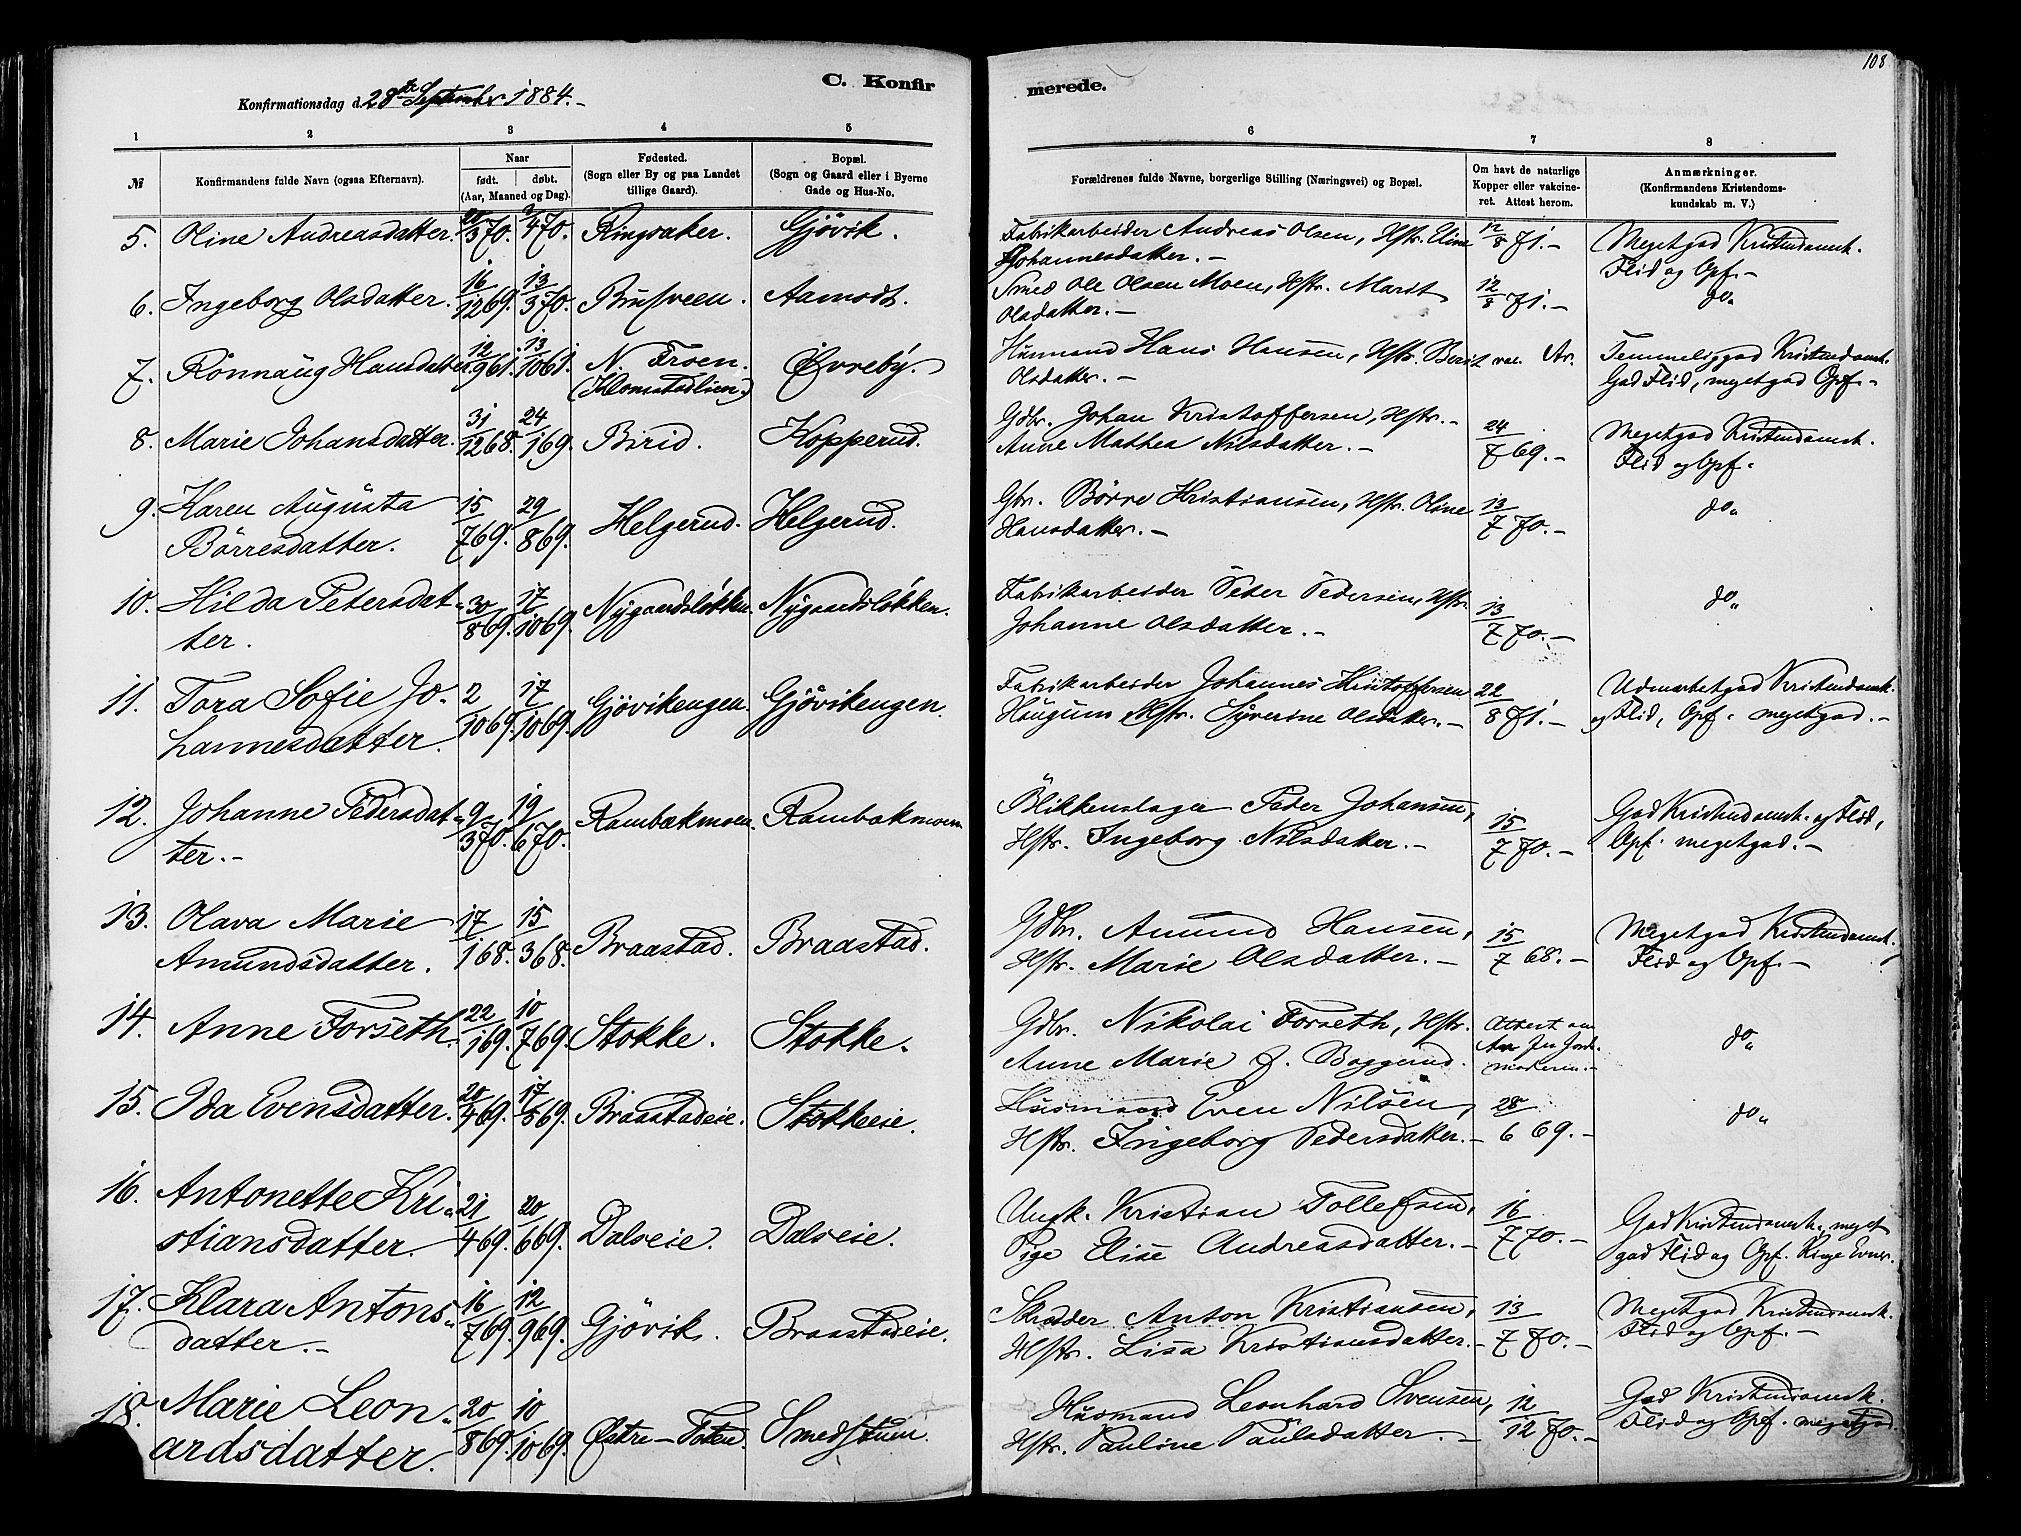 108
C. Konfir
merede.
Konfirmationsdag d. 28de September 1884.-
1 2 3 4 5 6 7 8
№
Konfirmandens fulde Navn (ogsaa Efternavn).
Naar
født. døbt.
(Aar, Maaned og Dag).
Fødested.
(Sogn eller By og paa Landet
tillige Gaard).
Bopæl.
(Sogn og Gaard eller i Byerne
Gade og Hus-No.
Forældrenes fulde Navne, borgerlige Stilling (Næringsvei) og Bopæl.
Om havt de naturlige
Kopper eller vakcine-
ret. Attest herom.
Anmærkninger.
(Konfirmandens Kristendoms-
kundskab m. V.)
5. Oline Andreasdatter. 20/3 70. 9/4 70. Ringsaker. Gjövik.
Fabrikarbeider Andreas Olsen, Hstr. Eline 12/8 71.- Megetgod Kristendomsk.
Johannesdatter.- Flid og Opf.-
6. Ingeborg Olsdatter. 16/12 69. 13/3 70. Bufveen. Aamodt.
Smed Ole Olsen Moen, Hstr. Marit 12/8 71.- do
Olsdatter.-
7. Rönnaug Hansdatter 12/9 61. 13/10 61. N. Froen. Øvreby.
(Klomstadlien)
Husmand Hans Hansen, Hstr. Berit vac. Ar. Temmeliggod Kristendomsk.
Olsdatter.- God Flid, megetgod Opf.-
8. Marie Johansdatter. 31/12 68. 24/1 69. Birid. Kopperud.
Gdbr. Johan Kristoffersen, Hstr.- 24/7 69.- Megetgod Kristendomsk.
Anne Mathea Nilsdatter.- Flid og Opf.
9. Karen Augusta 15/7 69. 29/8 69. Helgerud. Helgerud.
Börresdatter.
Gbr. Börre Kristiansen, Hstr. Oline 13/7 70.- do
Hansdatter.-
10. Hilda Petersdat- 30/8 69. 17/10 69. Nygaardsløkken. Nygaardsløkken.
ter.
Fabrikarbeider Peter Pedersen, Hstr. 13/7 70.- do
Johanne Olsdatter.-
11. Tora Sofie Jo- 2/10 69. 17/10 69. Gjövikengen. Gjövikengen.
hannesdatter.
Fabrikarbeider Johannes Kristoffersen 22/8 71.- Udmærketgod Kristendomsk.
Haugum Hstr. Syverine Olsdatter.- og Flid, Opf. megetgod.-
12. Johanne Pedersdat- 9/3 70. 19/6 70. Rambækmoen. Rambækmoen
ter.-
Blikkenslager Peder Johansen, 15/7 70.- God Kristendomsk. og Flid,
Hstr. Ingeborg Nilsdatter.- Opf. megetgod.-
13. Olava Marie 17/1 68. 15/3 68. Braastad. Braastad.
Amundsdatter.
Gdbr. Amund Hansen, 15/7 68.- Megetgod Kristendomsk.
Hstr. Marie Olsdatter.- Flid og Opf.-
14. Anne Forseth. 22/1 69. 10/7 69. Stokke. Stokke.
Gdbr. Nikolai Forseth, Hstr. Attest
Anne Marie J. Boggerud. do
15. Ida Evensdatter. 20/4 69. 17/5 69. Braastadeie. Stokkeeie.
Husmand Even Nilsen, 28/6 69.- do
Hstr. Ingeborg Pedersdatter.-
16. Antonette Kri- 21/4 69. 20/6 69. Dalseie. Dalseie.
stiansdatter.
Ungk. Kristian Tollefsen, 16/7 70.- God Kristendomsk. meget
Pige Elise Andreasdatter.- god Flid og Opf. Ringe Evner.
17. Klara Antons- 16/7 69. 12/9 69. Gjövik. Braastadeie.
datter.-
Skræder Anton Kristiansen, 13/7 70.- Megetgod Kristendomsk.
Hstr. Lisa Kristiansdatter.- Flid og Opf.-
18. Marie Leon- 20/8 69. 10/10 69. Østre-Toten. Smedstuen.
ardsdatter.
Husmand Leonhard Svensen, 12/12 70.- God Kristendomsk.
Hstr. Pauline Paulsdatter.- Flid og Opf. megetgod.